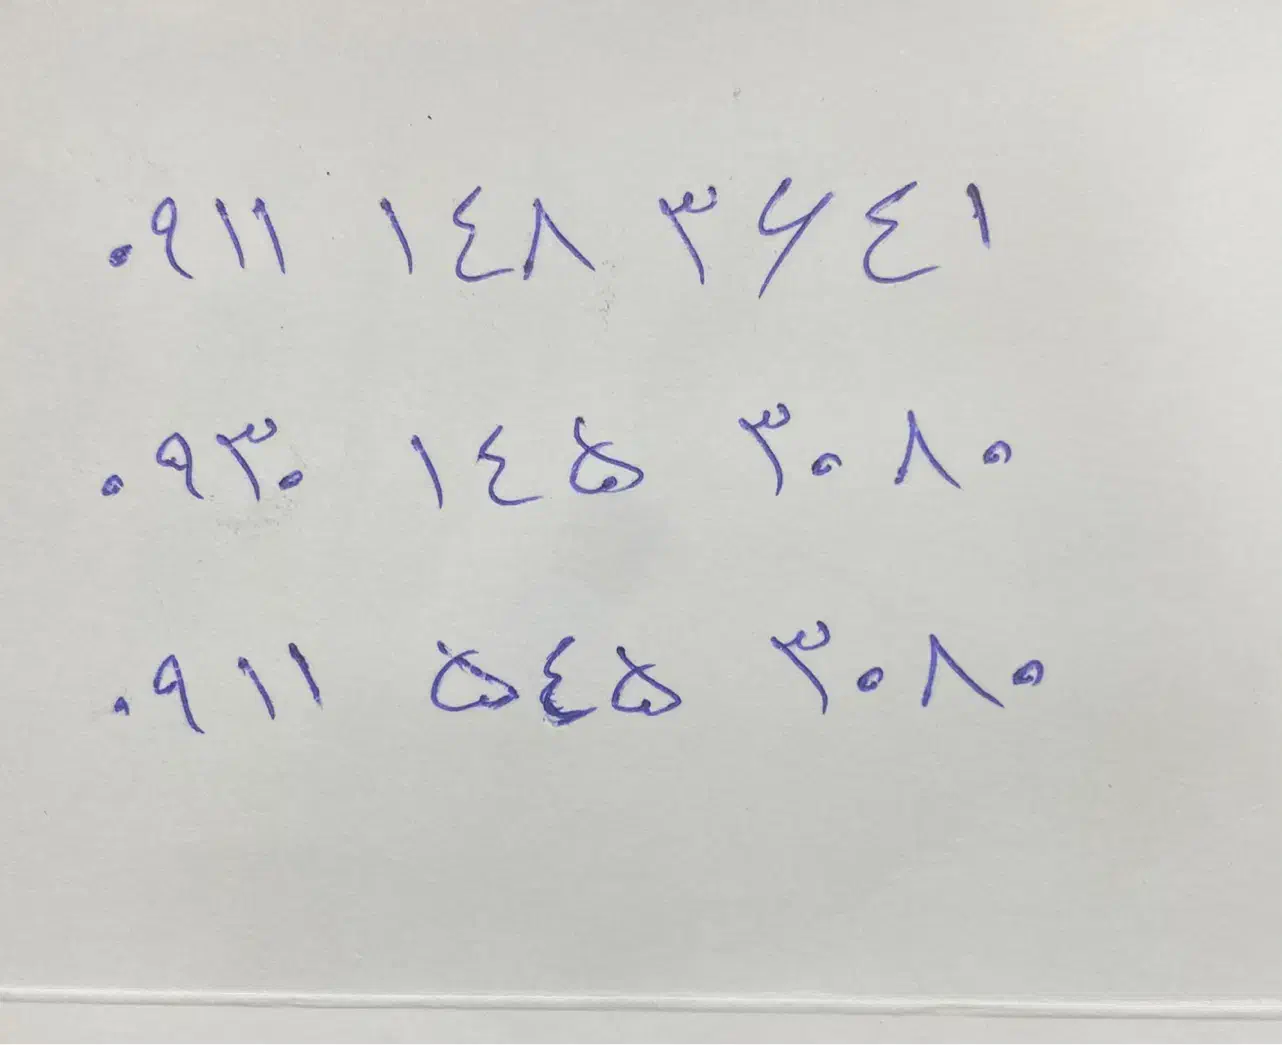 ۰۹۱۱ ۱۴۸ ۳۶۴۱
۰۹۳۰ ۱۴۵ ۳۰۸۰
۰۹۱۱ ۵۴۵ ۳۰۸۰